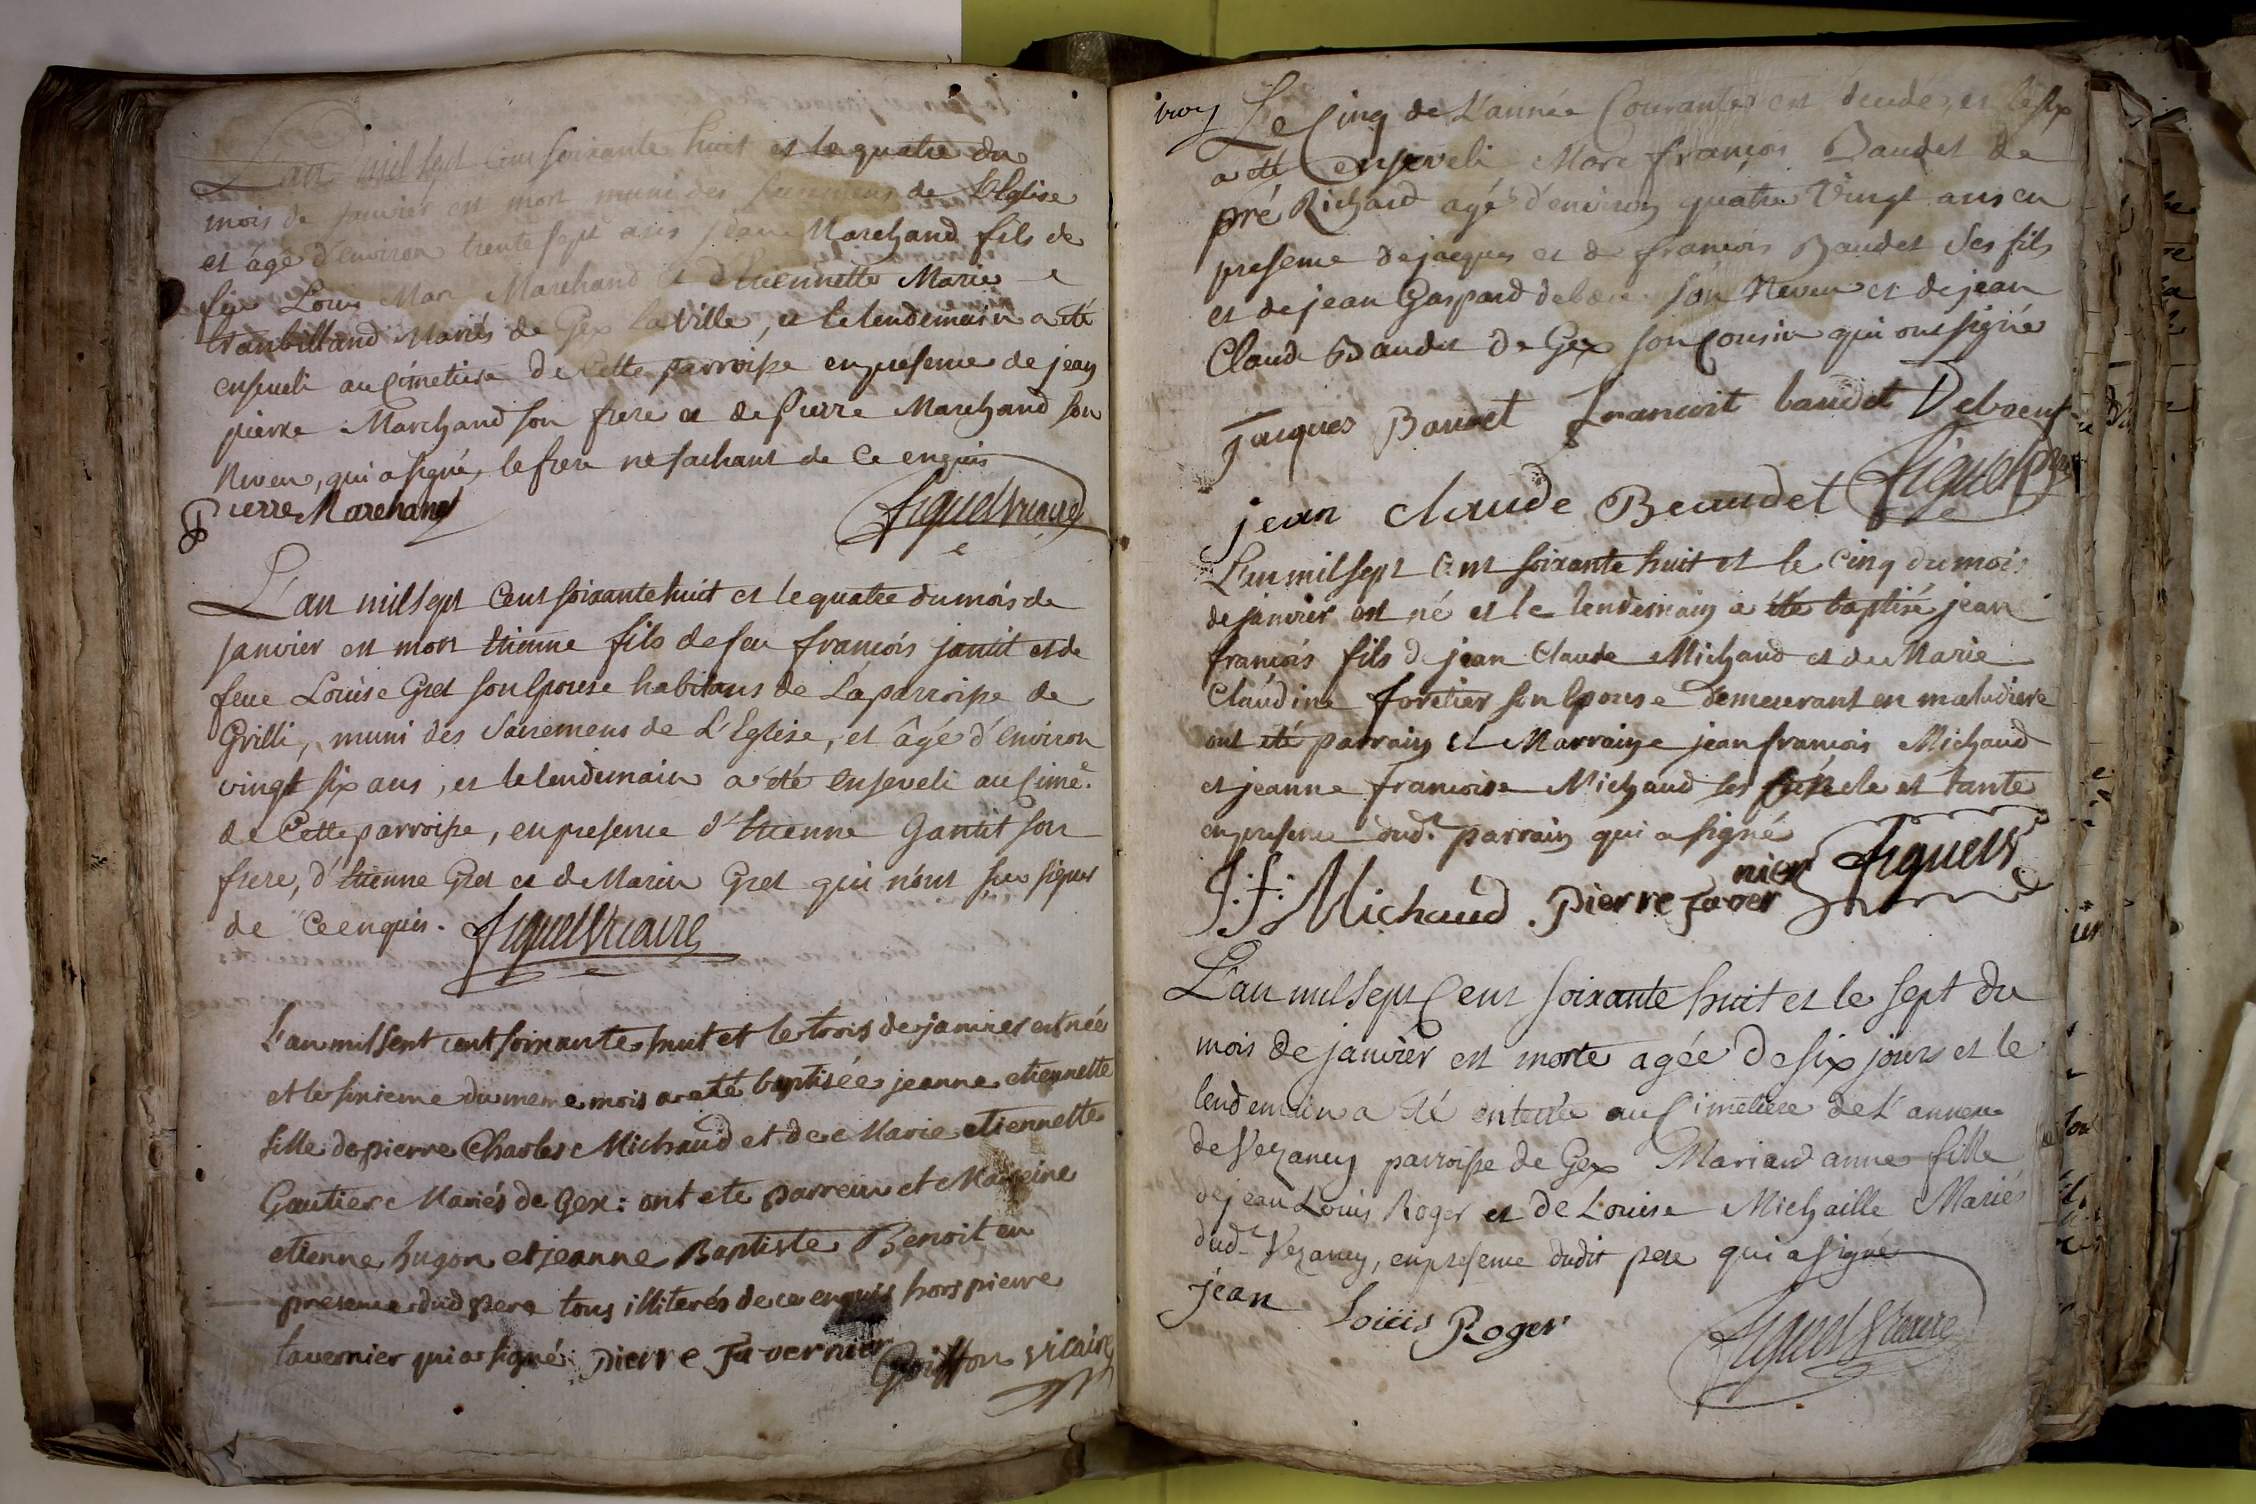 L'an mil sept cent soixante huit et le quatre du
mois de janvier est mort muni des sacremens de L'Eglise
et âgé d'environ trente sept ans jean Marchand fils de
feu Louis Marc Marchand et d'Etiennette Marie
tranbilland Mariés de Gex la ville, et le lendemain a été
enseveli au Cimetiere de cette parroisse en presence de jean
pierre Marchand son frere et de Pierre Marchand son
Neveu, qui a signé, le frere ne sachant de ce enquis
Pierre Marchand
L'an mil sept cent soixante huit et le quatre du mois de
janvier est mort Etienne fils de feu françois jantit et de
feue Louise Gret son Epouse habitans de La parroisse de
Grilli, muni des Sacremens de L'Eglise, et âgé d'environ
vingt six ans, et le lendemain a été enseveli au Cime.
de Cette parroisse, en presence d'Etienne Gantit son
frere, d'Etienne Gret et de Marin Gret qui n'ont sçu signer
de ce enquis. Figuet Vicaire
L'an mil sept cent soixante huit et le trois de janvier est née
et le sixieme du meme mois a été baptisée jeanne etiennette
fille de pierre Charles Michaud et de Marie etiennette
Gautier Mariés de Gex: ont ete parrein et Mareine
etienne hugon et jeanne Baptiste Benoit en
presence dud pere tous illiterés de ce enquis hors pierre
tavernier qui a signé. pierre Tavernier Griffon vicaire
Le Cinq de L'année Courante est decedé, et le six
a été Enseveli Marc françois Baudet de
pré Richard agé d'environ quatre Vingt ans en
presence de jacques et de françois Baudet Ses fils
et de jean Gaspard deboeu son Neveu et de jean
Claude Baudet de Gex son Cousin qui ont signé
Jacques Baudet francoit baudet Deboeuf
jean claude Beaudet Figuet
L'an mil sept Cent soixante huit et le cinq du mois
de janvier est né et le lendemain a été baptisé jean
françois fils de jean Claude Michaud et de Marie
Claudine foretier son Epouse demeurant en maladiere
ont été parrain et Marraine jean françois Michaud
et jeanne françoise Michaud ses oncle et tante
en presence dud.t parrain qui a signé
J. f. Michaud. pierre Taver nier Figuet V
L'an mil sept Cent soixante huit et le sept du
mois de janvier est morte agée de six jours et le
lendemain a été enterrée au Cimetiere de L'annexe
de Vezancy parroisse de Gex Mariand anne fille
de jean Louis Roger et de Louise Michaille Mariés
dud.t Vezancy, en presence dudit pere qui a signé
jean Loüis Roger Figuet Vicaire